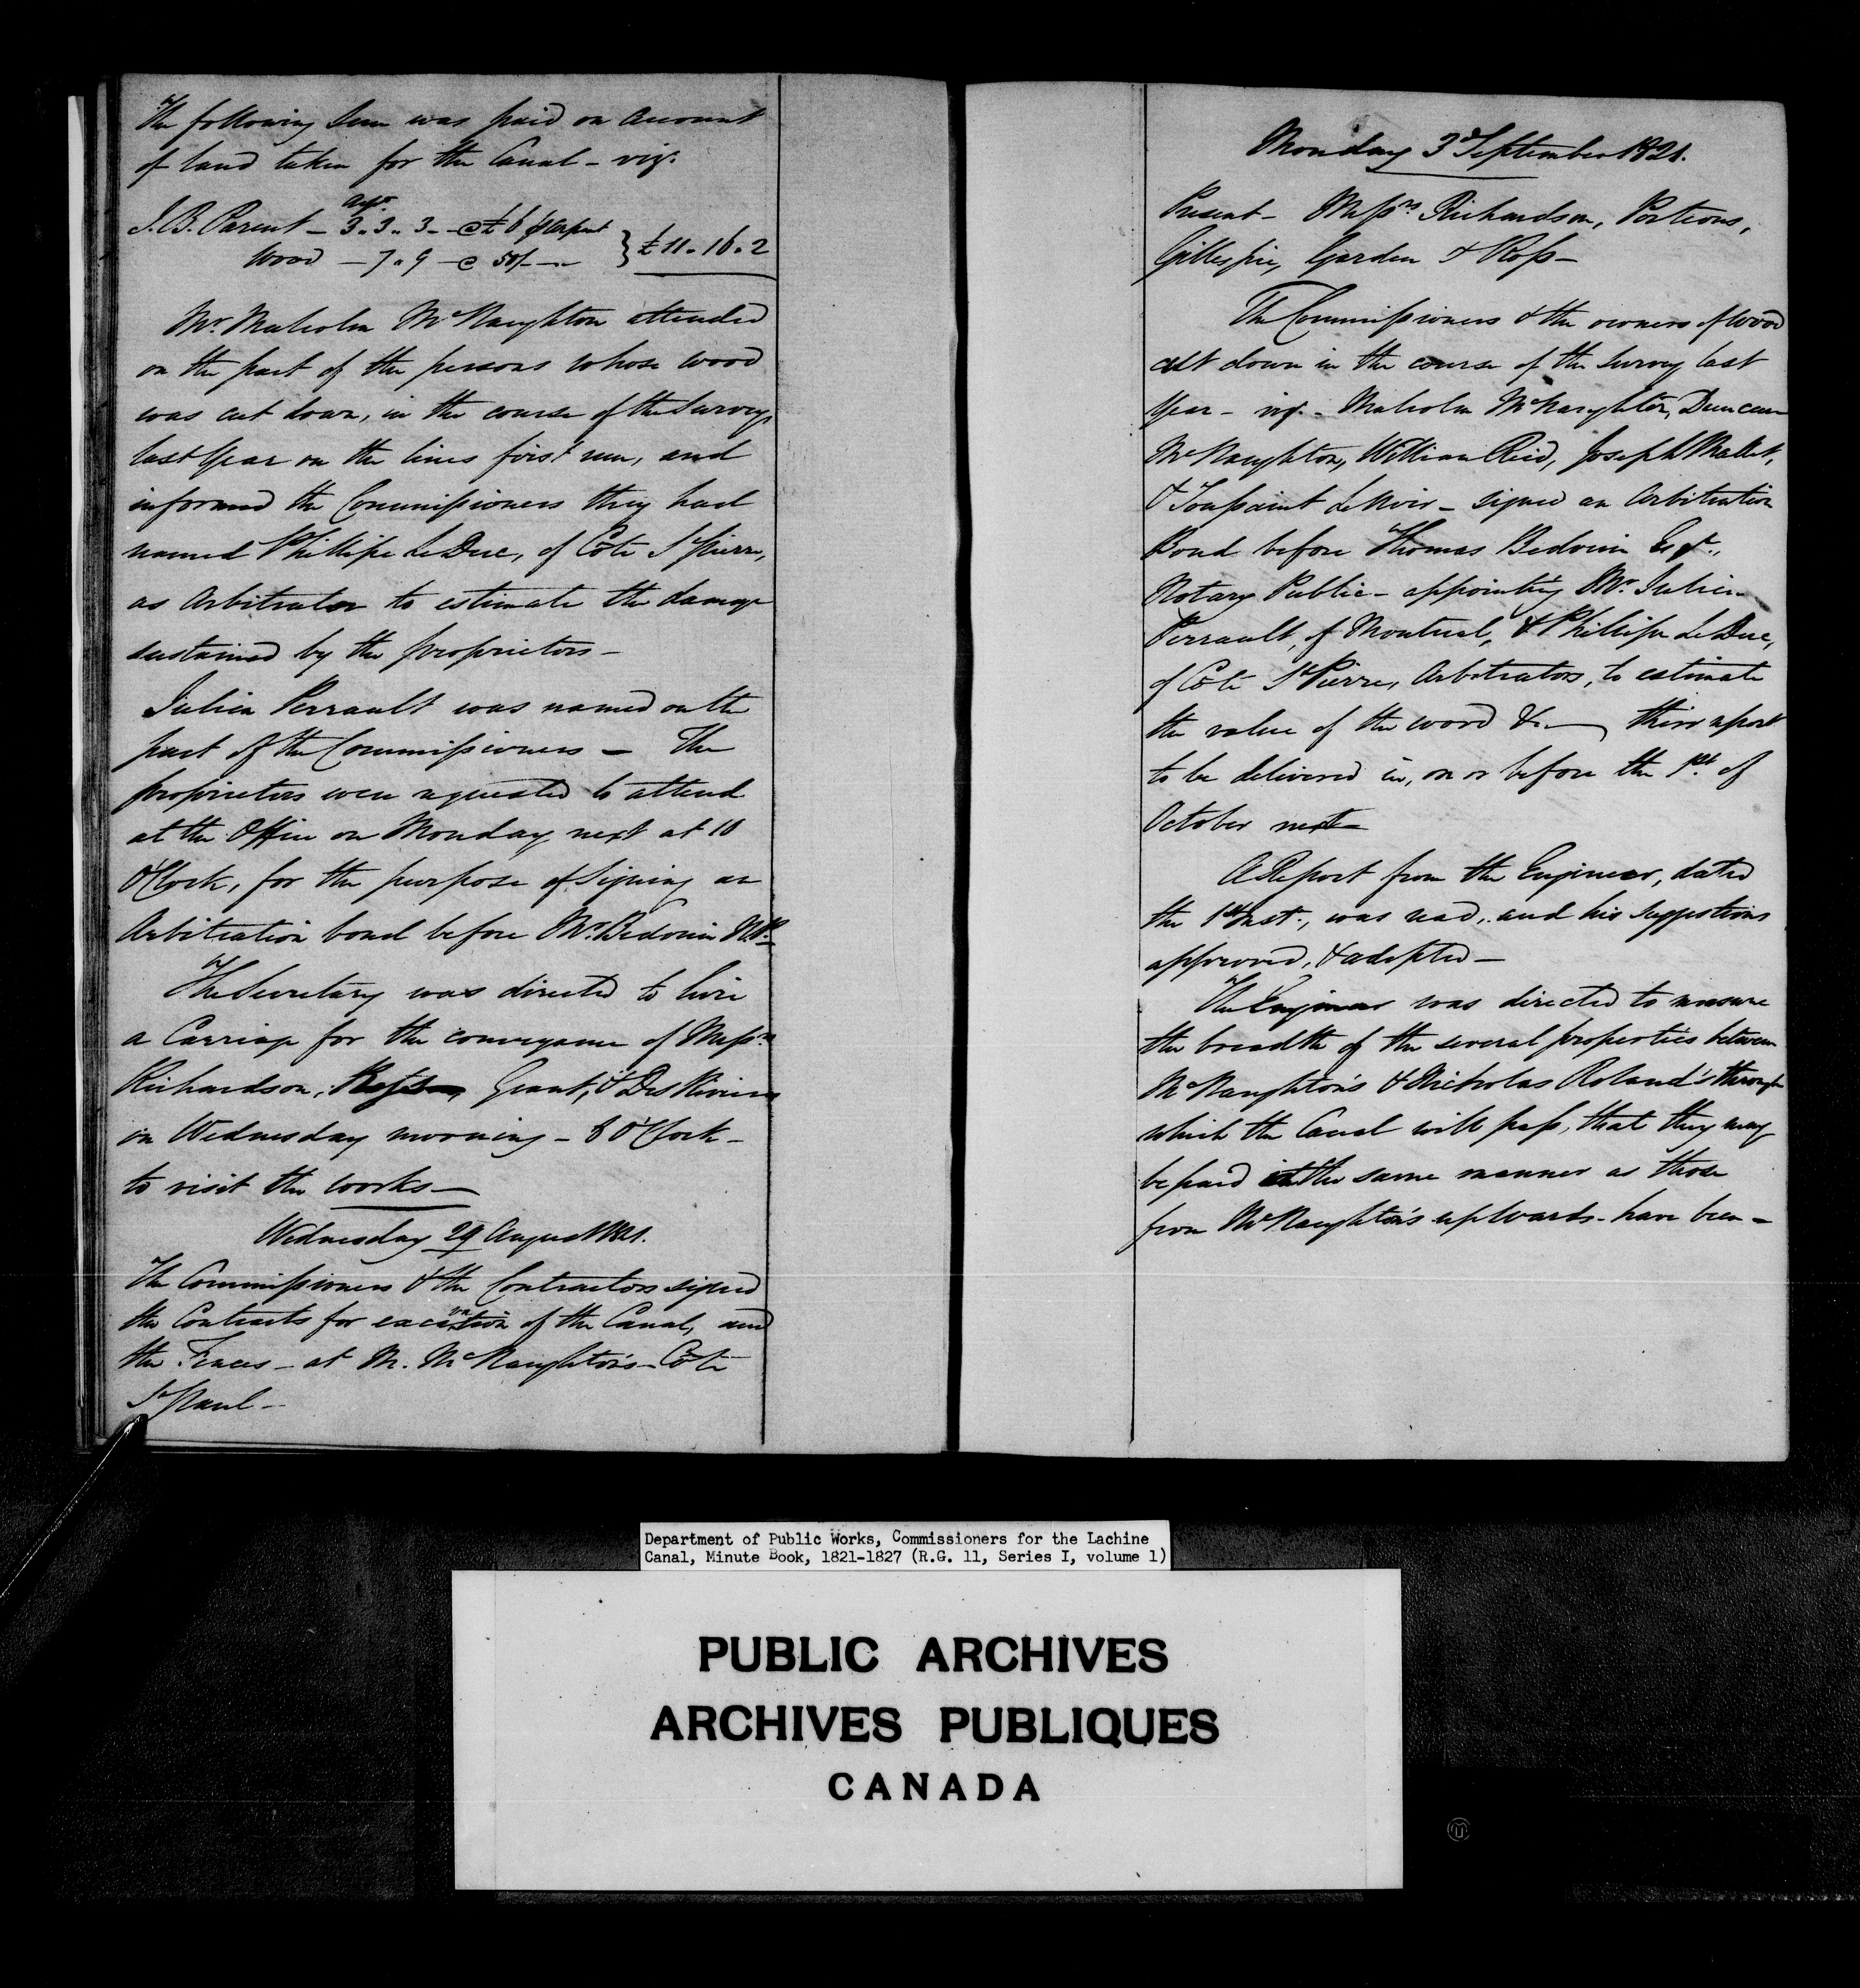 The following sum was paid on Account
of land taken for the Canal - viz.
J. B. Parent - 3 .. 3 .. 3 - @ £6 p arpent
Wood - 7 .. 9 - @ 50/ - } £11 .. 16 .. 2
Mr. Malcolm McNaughton attended
on the part of the persons whose wood
was cut down, in the course of the Survey,
last Year on the lines first run, and
informed the Commissioners they had
named Phillipe LeDuc, of Côte St Pierre,
as Arbitrator to estimate the damage
sustained by the proprietors -
Julien Perrault was named on the
part of the Commissioners - The
proprietors were requested to attend
at the Office on Monday next at 10
O'Clock, for the purpose of Signing an
Arbitration bond before Mr. Bedouin N.P.
The Secretary was directed to hire
a Carriage for the conveyance of Messrs
Richardson, Grant, & Des Rivieres
on Wednesday morning - 8 O'Clock -
to visit the works -
Wednesday 29 August 1821.
The Commissioners & the Contractors signed
the Contracts for excavation of the Canal, and
the Fences - at M. McNaughton's - Côte
St Paul -
Monday 3d September 1821.
Present - Messrs Richardson, Porteous,
Gillespie, Garden & Ross -
The Commissioners & the owners of wood
cut down in the course of the Survey last
Year - viz. - Malcolm McNaughton, Duncan
McNaughton, William Reid, Joseph Mallet,
& Toussaint LeNoir - signed an Arbitration
Bond before Thomas Bedouin Esqr.,
Notary Public - appointing Mr. Julien
Perrault, of Montreal, & Phillipe LeDuc,
of Côte St Pierre, Arbitrators, to estimate
the value of the wood &c - their report
to be delivered in, on or before the 1st. of
October next -
A Report from the Engineer, dated
the 1st Inst., was read, and his suggestions
approved, & adopted -
The Engineer was directed to measure
the breadth of the several properties between
McNaughton's & Nicholas Roland's through
which the Canal will pass, that they may
be paid in the same manner as those
from McNaughton's upwards - have been -
Department of Public Works, Commissioners for the Lachine
Canal, Minute Book, 1821-1827 (R.G. 11, Series I, volume 1)
PUBLIC ARCHIVES
ARCHIVES PUBLIQUES
CANADA